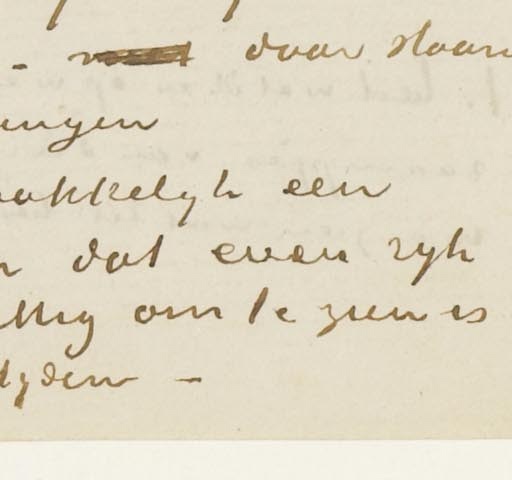 - daar staan
ingen
akkelijk een
n dat even rijk
ttig om te zien is
tijden -